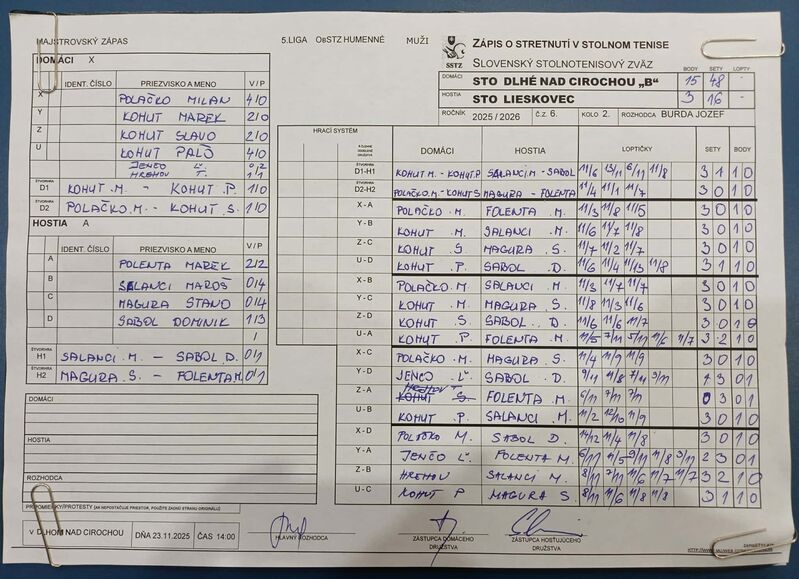 MAJSTROVSKÝ ZÁPAS 5.LIGA ObSTZ HUMENNÉ MUŽI
ZÁPIS O STRETNUTÍ V STOLNOM TENISE
SLOVENSKÝ STOLNOTENISOVÝ ZVÄZ
SSTZ
BODY SETY LOPTY
DOMÁCI STO DLHÉ NAD CIROCHOU „B" 15 48 -
HOSTIA STO LIESKOVEC 3 16 -
ROČNÍK 2025 / 2026 Č.Z. 6. KOLO 2. ROZHODCA BURDA JOZEF
DOMÁCI X
IDENT. ČÍSLO PRIEZVISKO A MENO V / P
X POLAČKO MILAN 4/0
Y KOHUT MAREK 2/0
Z KOHUT SLAVO 2/0
U KOHUT PAĽO 4/0
JENČO Ľ. 0/2
HREHOV T. 1/1
ŠTVORHRA D1 KOHUT M. - KOHUT P. 1/0
D2 POLAČKO.M. - KOHUT S. 1/0
HOSTIA A
IDENT. ČÍSLO PRIEZVISKO A MENO V / P
A FOLENTA MAREK 2/2
B SALANCI MAROŠ 0/4
C MAGURA STANO 0/4
D SABOL DOMINIK 1/3
/
ŠTVORHRA H1 SALANCI M. - SABOL D. 0/1
ŠTVORHRA H2 MAGURA S. - FOLENTA M. 0/1
DOMÁCI
HOSTIA
ROZHODCA
HRACÍ SYSTÉM
DOMÁCI HOSTIA LOPTIČKY SETY BODY
D1-H1 KOHUT M. - KOHUT.P SALANCI.M - SABOL 11/6 13/11 6/11 11/8 3 1 1 0
D2-H2 POLAČKO.M. - KOHUT S MAGURA - FOLENTA 11/4 11/1 11/7 3 0 1 0
X - A POLAČKO .M. FOLENTA M. 11/3 11/8 11/5 3 0 1 0
Y - B KOHUT M. SALANCI M. 11/6 11/7 11/8 3 0 1 0
Z - C KOHUT S. MAGURA S. 11/7 11/2 11/7 3 0 1 0
U - D KOHUT P. SABOL D. 11/6 11/4 11/13 11/8 3 1 1 0
X - B POLAČKO.M. SALANCI M. 11/3 11/7 11/7 3 0 1 0
Y - C KOHUT M. MAGURA S. 11/8 11/3 11/6 3 0 1 0
Z - D KOHUT S. SABOL D. 11/6 11/6 11/7 3 0 1 0
U - A KOHUT P. FOLENTA M. 11/5 7/11 5/11 11/6 11/7 3 2 1 0
X - C POLAČKO.M. MAGURA S. 11/4 11/7 11/9 3 0 1 0
Y - D JENČO Ľ. SABOL D. 9/11 11/8 7/11 3/11 1 3 0 1
Z - A HREHOV T FOLENTA M. 6/11 7/11 7/11 0 3 0 1
U - B KOHUT P. SALANCI M. 11/2 12/10 11/9 3 0 1 0
X - D POLAČKO M. SABOL D. 14/12 11/4 11/8 3 0 1 0
Y - A JENČO Ľ. FOLENTA M. 6/11 11/5 9/11 11/8 3/11 2 3 0 1
Z - B HREHOV SALANCI M. 8/11 11/7 11/6 11/7 3 2 1 0
U - C KOHUT P MAGURA S. 8/11 11/6 11/8 11/8 3 1 1 0
PRIPOMIENKY/PROTESTY (AK NEPOSTAČUJE PRIESTOR, POUŽITE ZADNÚ STRANU ORIGINÁLU)
V DLHOM NAD CIROCHOU DŇA 23.11.2025 ČAS 14:00
HLAVNÝ ROZHODCA
ZÁSTUPCA DOMÁCEHO DRUŽSTVA
ZÁSTUPCA HOSŤUJÚCEHO DRUŽSTVA